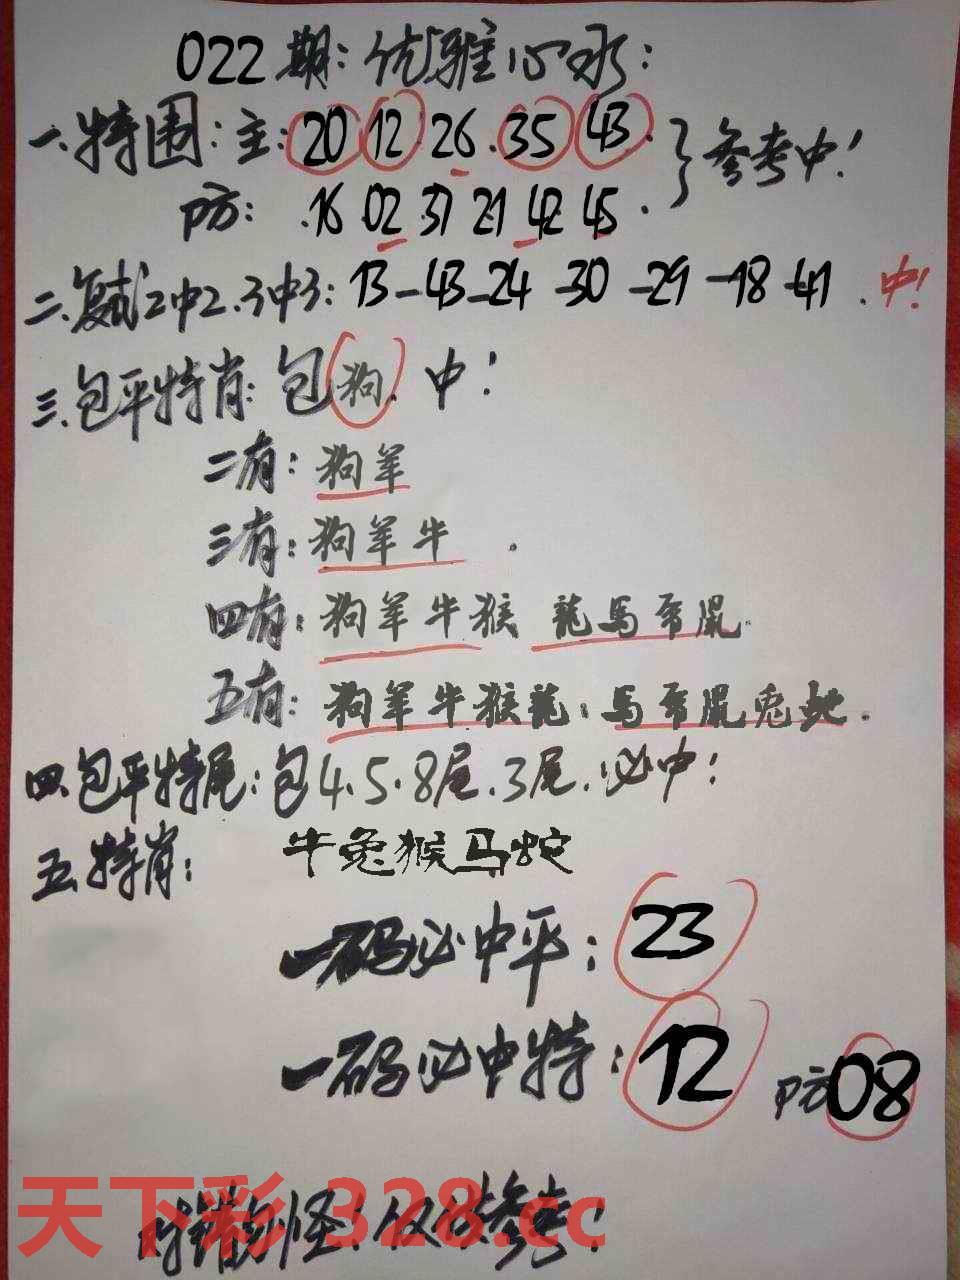 022期:优雅心水:
一.特围:主:20 12 26.35 43.}参考中!
防: .16 02 37 21 42 45.
二.复式2中2.3中3:13-43-24-30-29-18-41.中!
三.包平特肖:包狗.中!
二有:狗羊
三有:狗羊牛.
四有:狗羊牛猴 龍馬鼠.
五有:狗羊牛猴龍:馬鼠兔蛇.
四.包平特尾:包4.5.8尾.3尾.必中:
五.特肖: 牛兔猴马蛇
一码必中平:23
一码必中特:12 防08
对错勿怪!仅供参考!
天下彩 328.cc